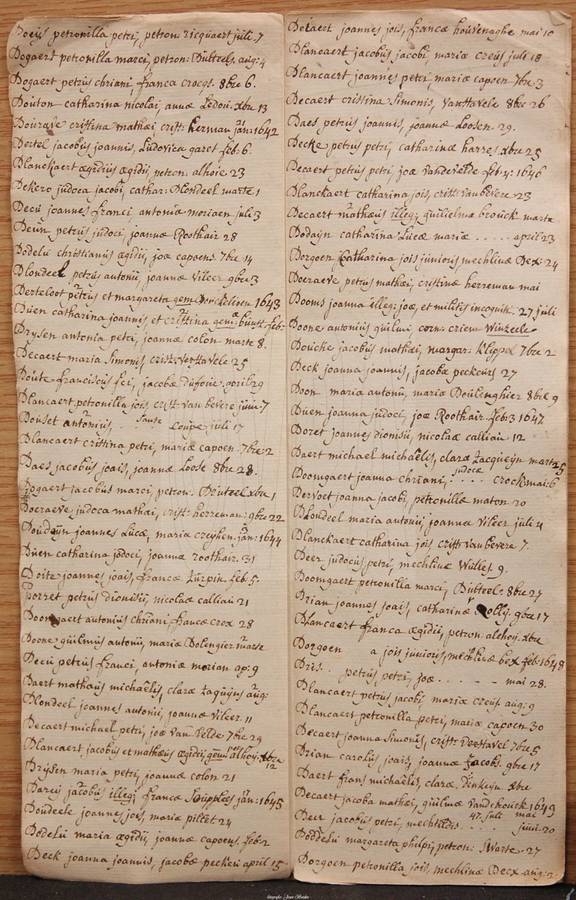 Boeÿs petronilla petri, petron: ricquaert juli. 7
Bogaert petronilla marci, petron: Dubteels. aug: 4
Bogaert petrus chriani franca crocqs. 8bre 6.
Bouton catharina nicolai, annæ Ledou. xbre 13
Bourave cristina mathæi, crist: herman jan: 1642
Bertel jacobus joannis, Ludovica garet feb. 6.
Blanckaert ægidius ægidij, petron: alhoie 23
Bekero judoca jacobi, cathar: Blondeel marte 1
Becü joannes franci antonia moriaen juli 3
Beun petrus judoci, joannæ Roothair 28
Bodelü christianus ægidij, joæ capoens 7bre 14
Blondeel petrus antonii, joannæ Vileer 9bre 3
Berteloot petrus et margareta gem: 1643
Büen catharina joannis et cristina gem: feb:
Brÿsen antonia petri, joannæ colon marte 8.
Decaert maria Simonis, crist: verHavele 25
Boute franciscus jacobæ april 29
Blancaert petronilla jois, crist van bevere juni 7
Bouset antonius, juli 17
Blancaert cristina petri, mariæ capoen 7bre 2
Baes jacobus joais, joannæ Loose 8bre 28.
Bogaert jacobus marci, petron. Buteel xbre 1
Boeraeve judoca mathæi, crist: herreman: 9bre 22
Boudaÿn joannes Lucæ, maria creyhen jan: 1644
Büen catharina judoci, joannæ roothair. 31
Boite joannes joais, francæ Turpin feb. 5.
Borret petrus dionisii, nicolaæ calliau 21
Boomgaert antonius chriani, francæ crox 28
Boone guilmus antonii, mariæ Bolengier marte
Becü petrus franci, antonia morian ap: 9
Baert mathæus michaëlis, claræ Zaquÿns aug:
Blondeel joannes antonii, joannæ Vileer. 11
Becaert michael petri, joæ van Velde 7bre 29
Blancaert jacobus et mathæus ægidij gem: alhoy: xbre
12
Brÿsen maria petri, joannæ colon 21
Barei jacobus illeg: francæ Soupples jan: 1645
Boudeele joannes jois, maria pillet 24
Bodelü maria ægidij, joannæ capoens feb: 2
Beck joanna joannis, jacobæ peckeü april 15
Betaert joannes jois, francæ housenaghe mai 10
Blancaert jacobus jacobi, mariæ creus juli 18
Blancaert joannes petri, mariæ capoen 7bre 3
Becaert cristina Simonis, VanHavele 8bre 26
Baes petrus joannis, joannæ Loosen 29.
Becke petrus petri, catharinæ harres xbre 25
Becaert petrus petri joæ vandevelde feb: 4: 1646
Blanckaert catharina jois, crist: van bevere 23
Becaert mathæus illeg: guilielmæ broück marte
Bodaÿn catharina Lucæ mariæ ..... april 23
Borgoen catharina jois junioris mechlinæ Bex: 24
Boeraeve petrus mathæi, cristinæ herreman mai
Booms joanna illeg: joæ, et militis incognit. 27 juli
Boone antonius guilmi corn: crieus Winzeele
Boucke jacobus mathæi, margar: Klippel 7bre 2
Beck joanna joannis, jacobæ peckeurs 27
Boon maria antonii, mariæ Boulenghier 8bre 9
Büen joanna judoci, joæ Roothair. feb: 3 1647
Boret joannes dionisii, nicolaæ calliau. 12
Baert michael michaëlis, claræ Zacquyn mart: 25
Boomgaert joanna chriani, judocæ .... crock mai: 6
Bervoet joanna jacobi, petronillæ maton 20
Blondeel maria antonij, joannæ Vileer juli 4
Blanckaert catharina jois, crist: van bevere 7.
Beer judocus petri, mechlinæ Willies 9.
Boomgaert petronilla marci, Bubteels 8bre 27
Brian joannes joais, catharinæ Jolly. 9bre 17
Blancaert franca ægidij, petron alehoy. xbre
Borgoen a jois junioris, mechlinæ bex feb: 1648
Bris.. petrus petri, joæ .... mai 28.
Blancaert petrus jacobi mariæ creus aug: 9
Blancaert petronilla petri, mariæ capoen 30
Becaert joanna Simonis, crist: verHavel 7bre 5
Brian carolus joais, joannæ Jacobi. 9bre 17
Baert frans michaëlis, claræ xbre
Becaert jacoba mathæi, guilmæ Vandebrouck 1649
Beer jacobus petri, mechtildis .... 47 juli mai
juni. 20
Boddelü margareta philpi, petron: Warte. 27
Borgoen petronilla jois, mechlinæ Becx aug: 2